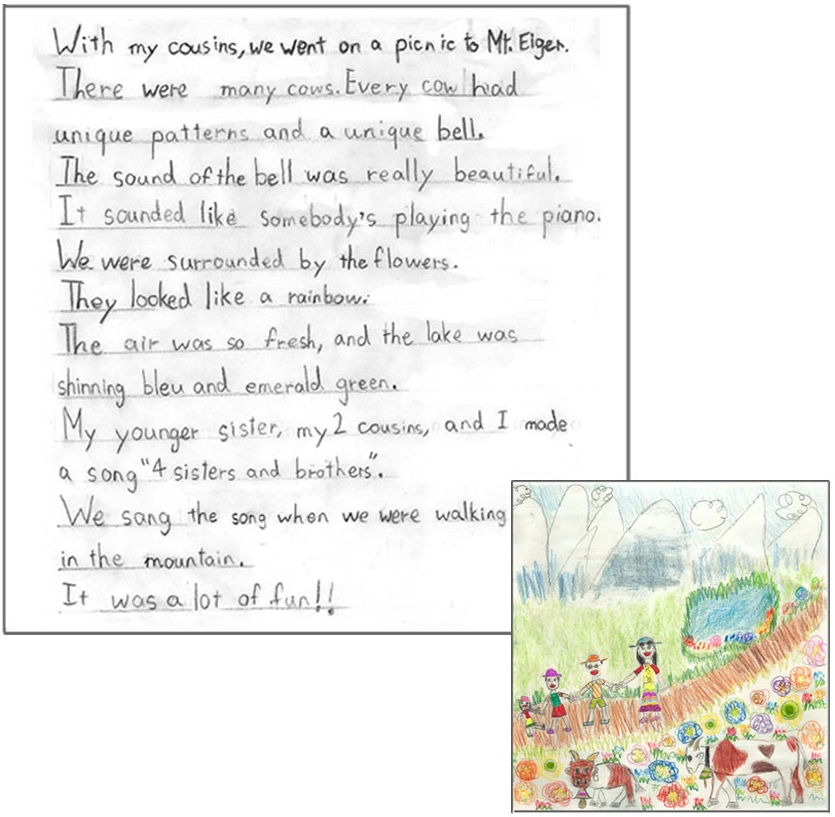 With my cousins, we went on a picnic to Mt. Eiger.
There were many cows. Every cow had
unique patterns and a unique bell.
The sound of the bell was really beautiful.
It sounded like somebody's playing the piano.
We were surrounded by the flowers.
They looked like a rainbow.
The air was so fresh, and the lake was
shinning bleu and emerald green.
My younger sister, my 2 cousins, and I made
a song "4 sisters and brothers".
We sang the song when we were walking
in the mountain.
It was a lot of fun!!